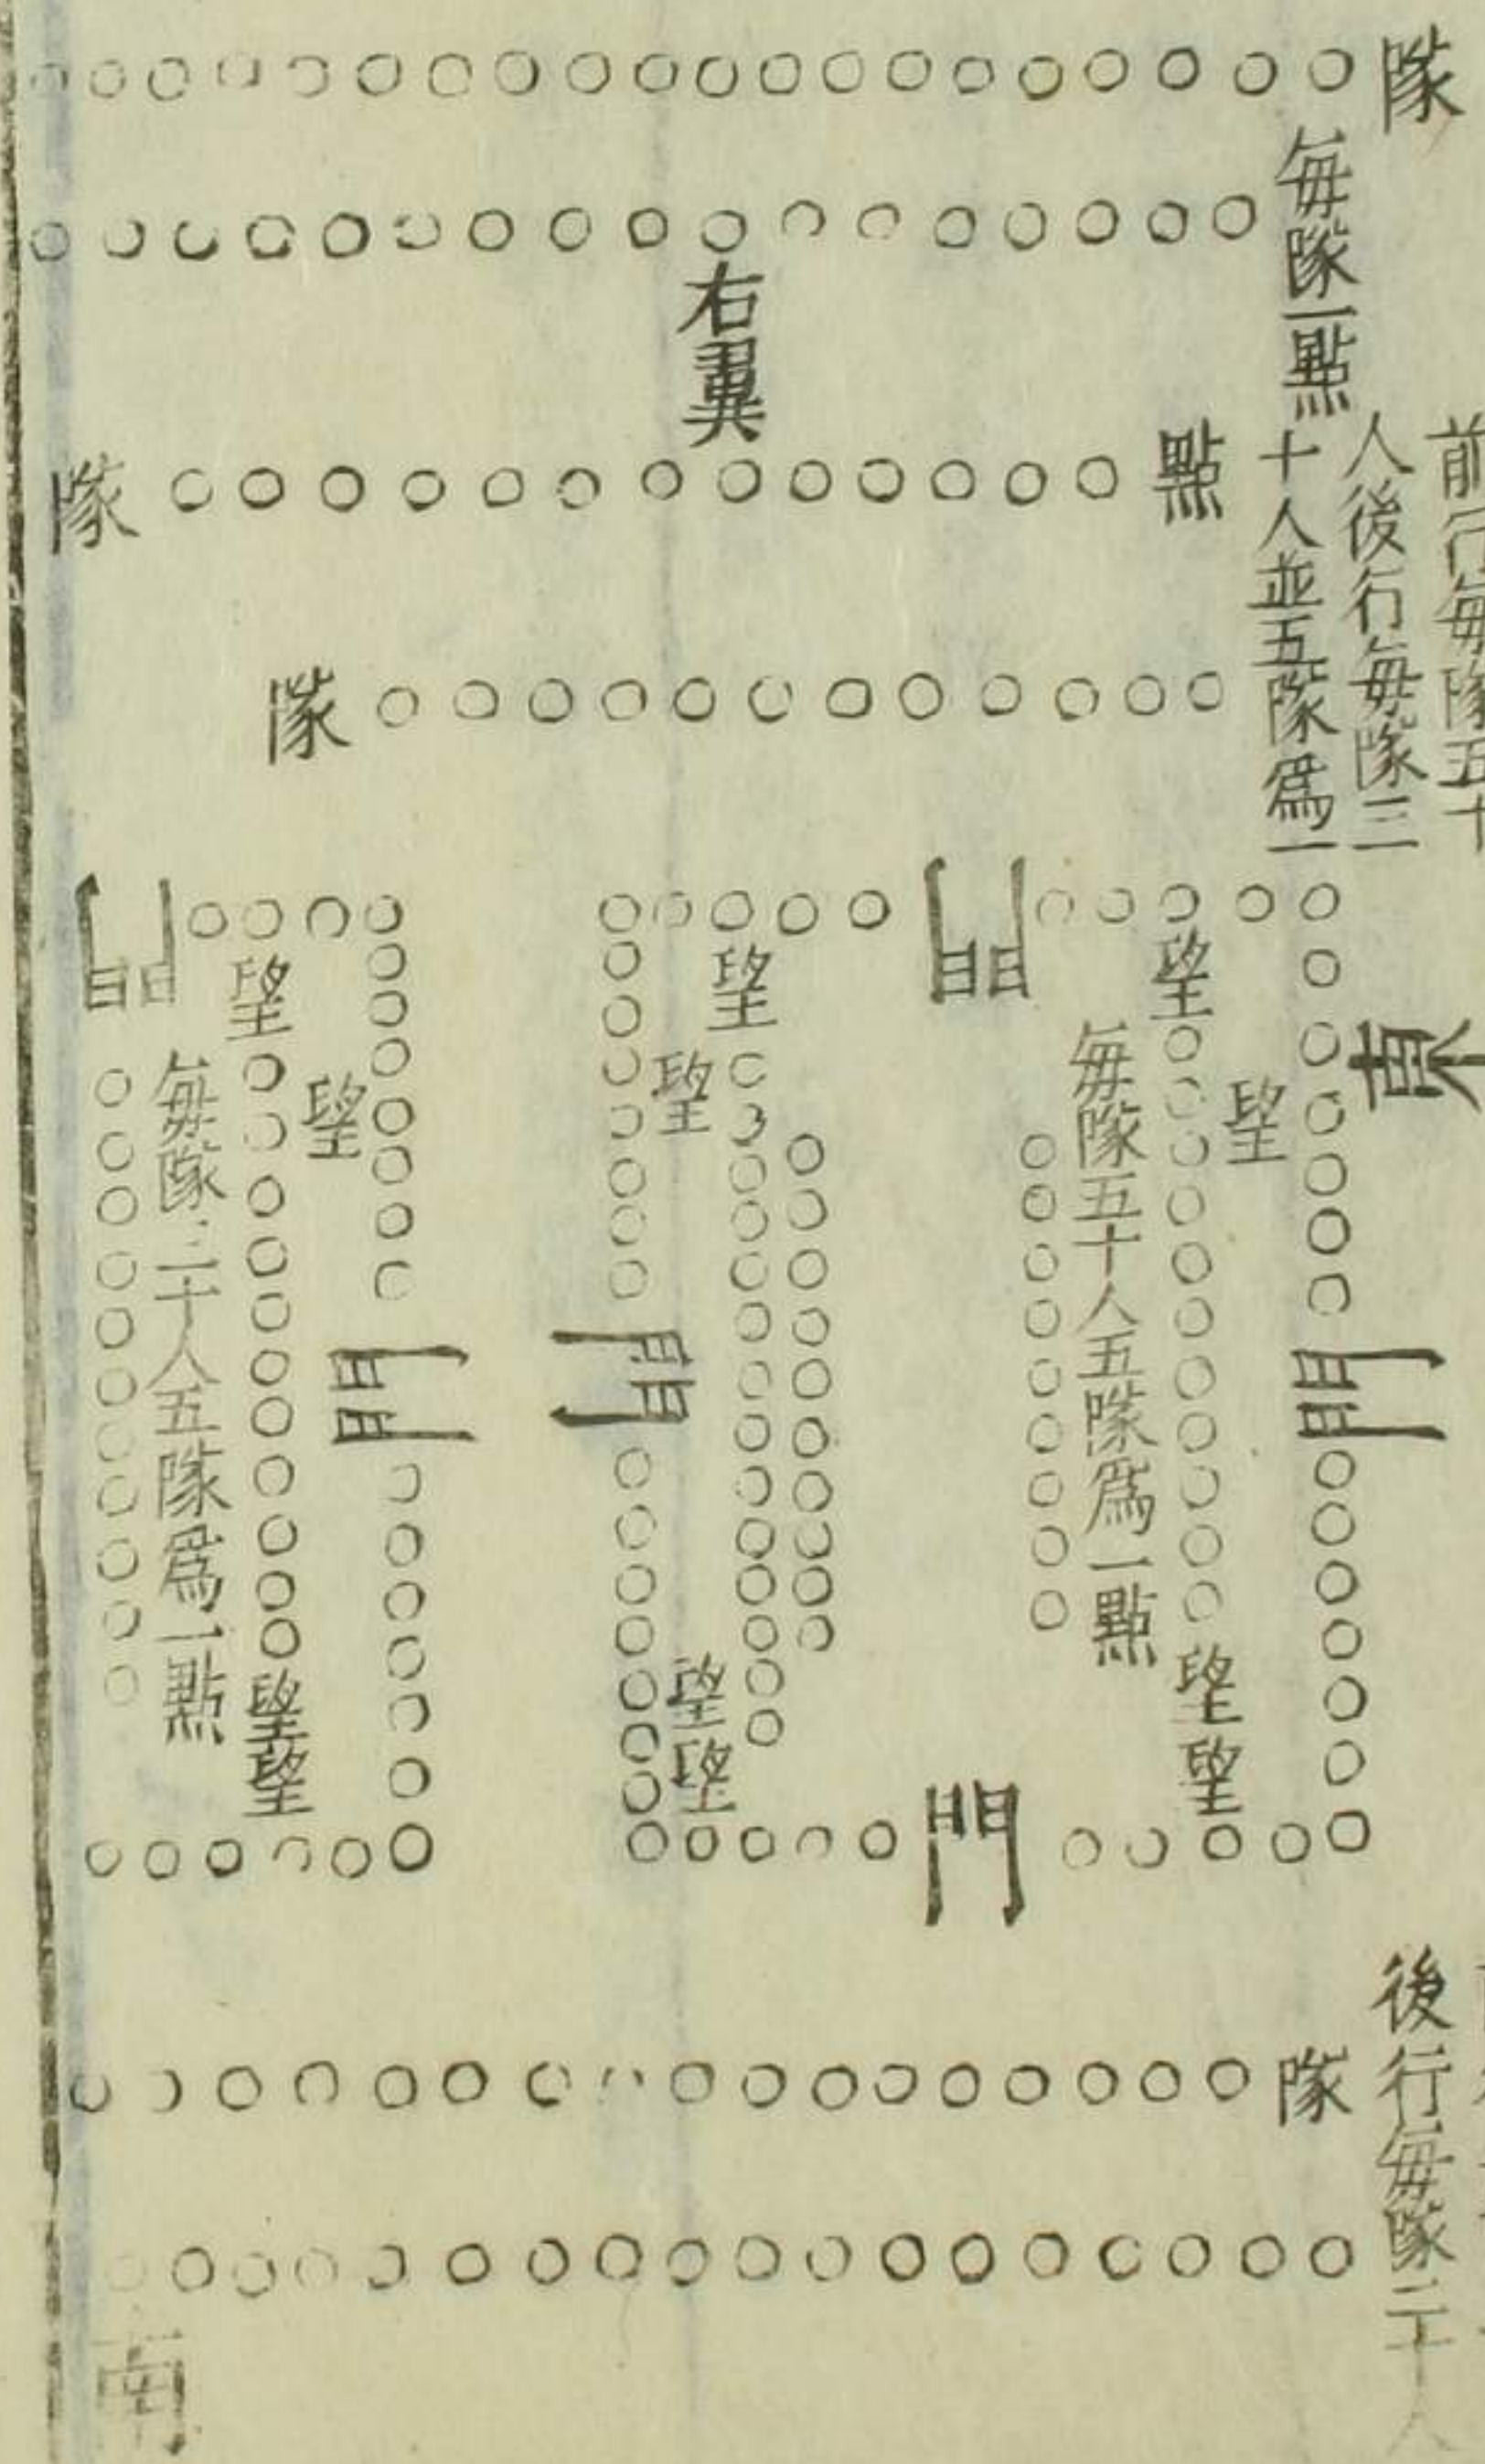 隊
前行每隊五十
人後行每隊三
十人並五隊爲一
點
每隊一點
右翼
隊
隊
東
門
望
望
每隊五十人五隊爲一點
望
望
門
門
望
望
望
望
門
門
望
望
每隊三十人五隊爲一點
望
望
門
門
後行每隊三十人
隊
南